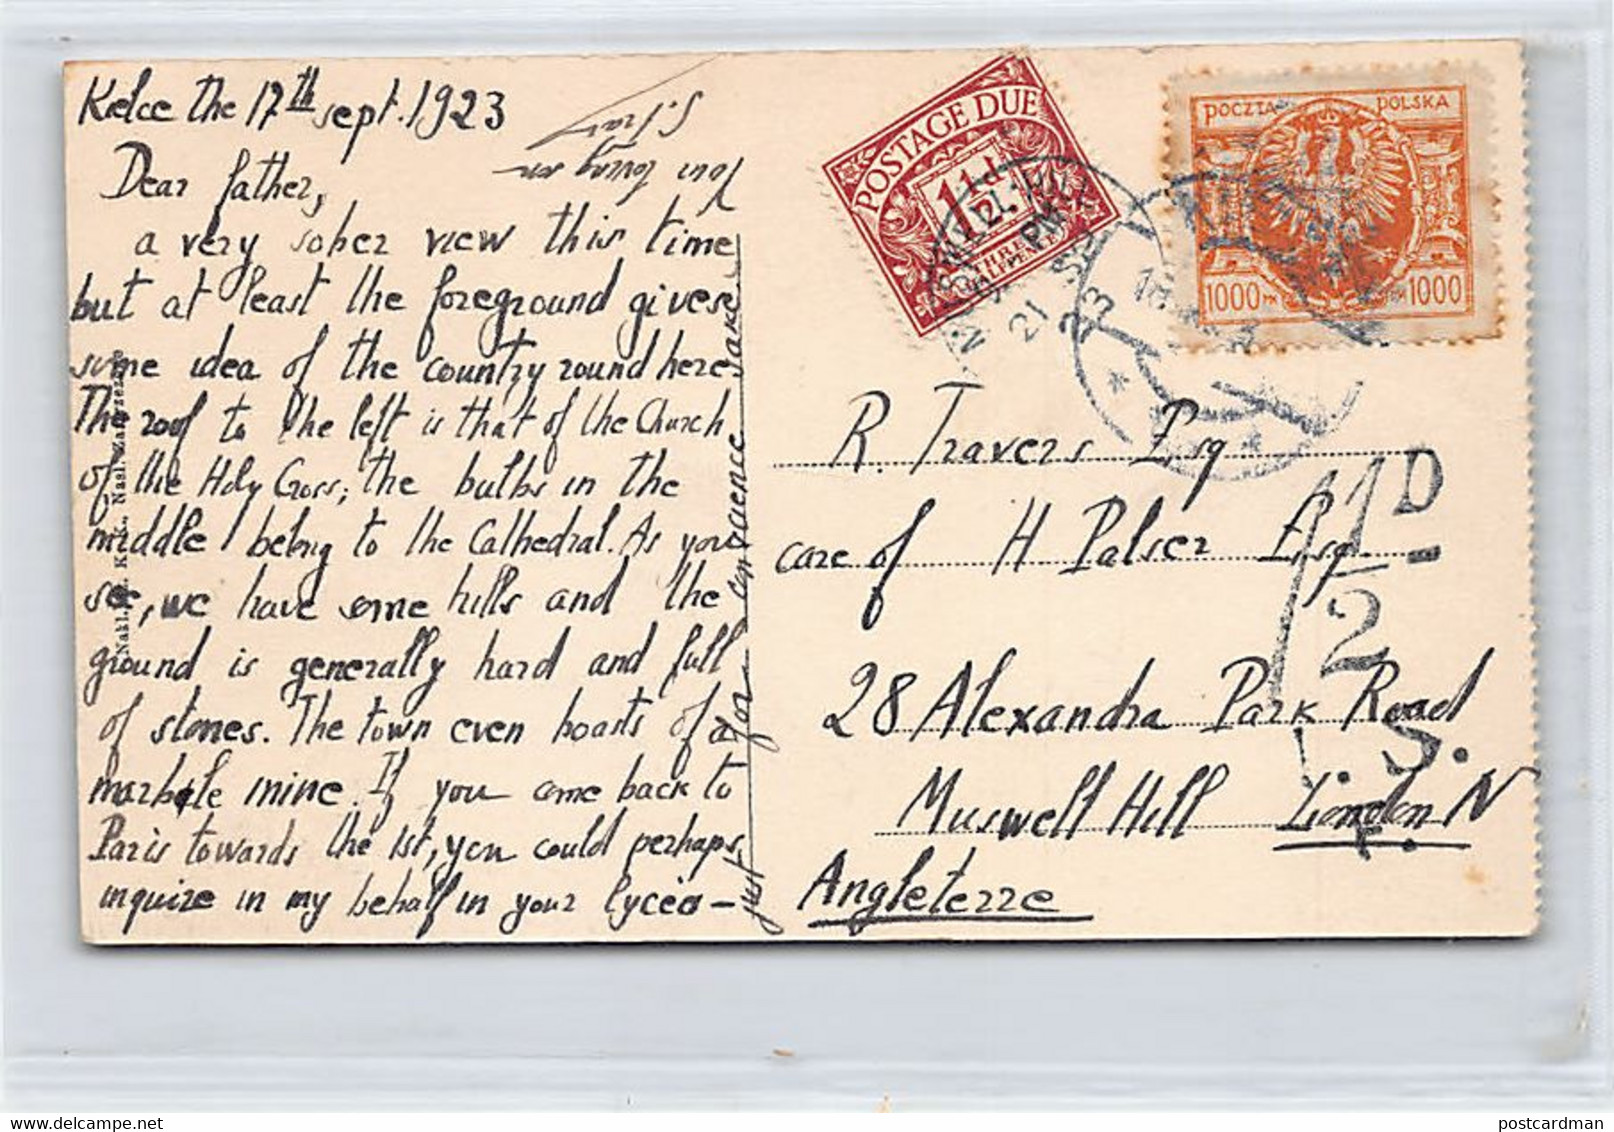 Kielce the 17th sept. 1923
Dear father,
a very sober view this time
but at least the foreground gives
some idea of the country round here.
The roof to the left is that of the Church
of the Holy Cross; the bulbs in the
middle belong to the Cathedral. As you
see, we have some hills and the
ground is generally hard and full
of stones. The town even boasts of a
marble mine. If you come back to
Paris towards the 1st, you could perhaps
inquire in my behalf in your lycéo —
just for conscience sake
Your loving son
POSTAGE DUE
1½d
THREE
HALFPENCE
21 SE
23
POCZTA POLSKA
1000 MK 1000
R. Travers Esq
care of H Palser Esq.
28 Alexandra Park Road
Muswell Hill London N
Angleterre
1 D
2
I. S.
F.
postcardman